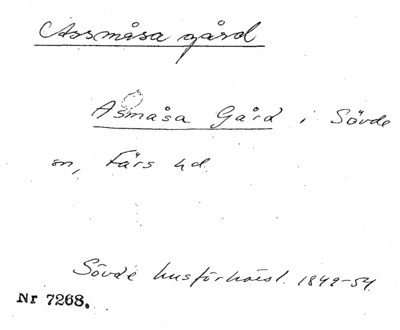 Assmåsa gård
Asmåsa Gård i Sövde
sn, Färs hd.
Sövde husförhörsl. 1849-54.
Nr 7268.